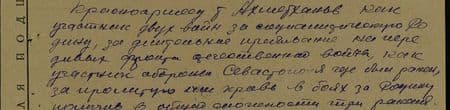 Красноармеец т Ахметханов как
участник двух войн за социалистическую Ро
дину, за длительное пребывание на пере
довых фронта отечественной войны, как
участник обороны Севастополя где был ранен,
за пролитую им кровь в боях за Родину
получив в общей сложности три ранения